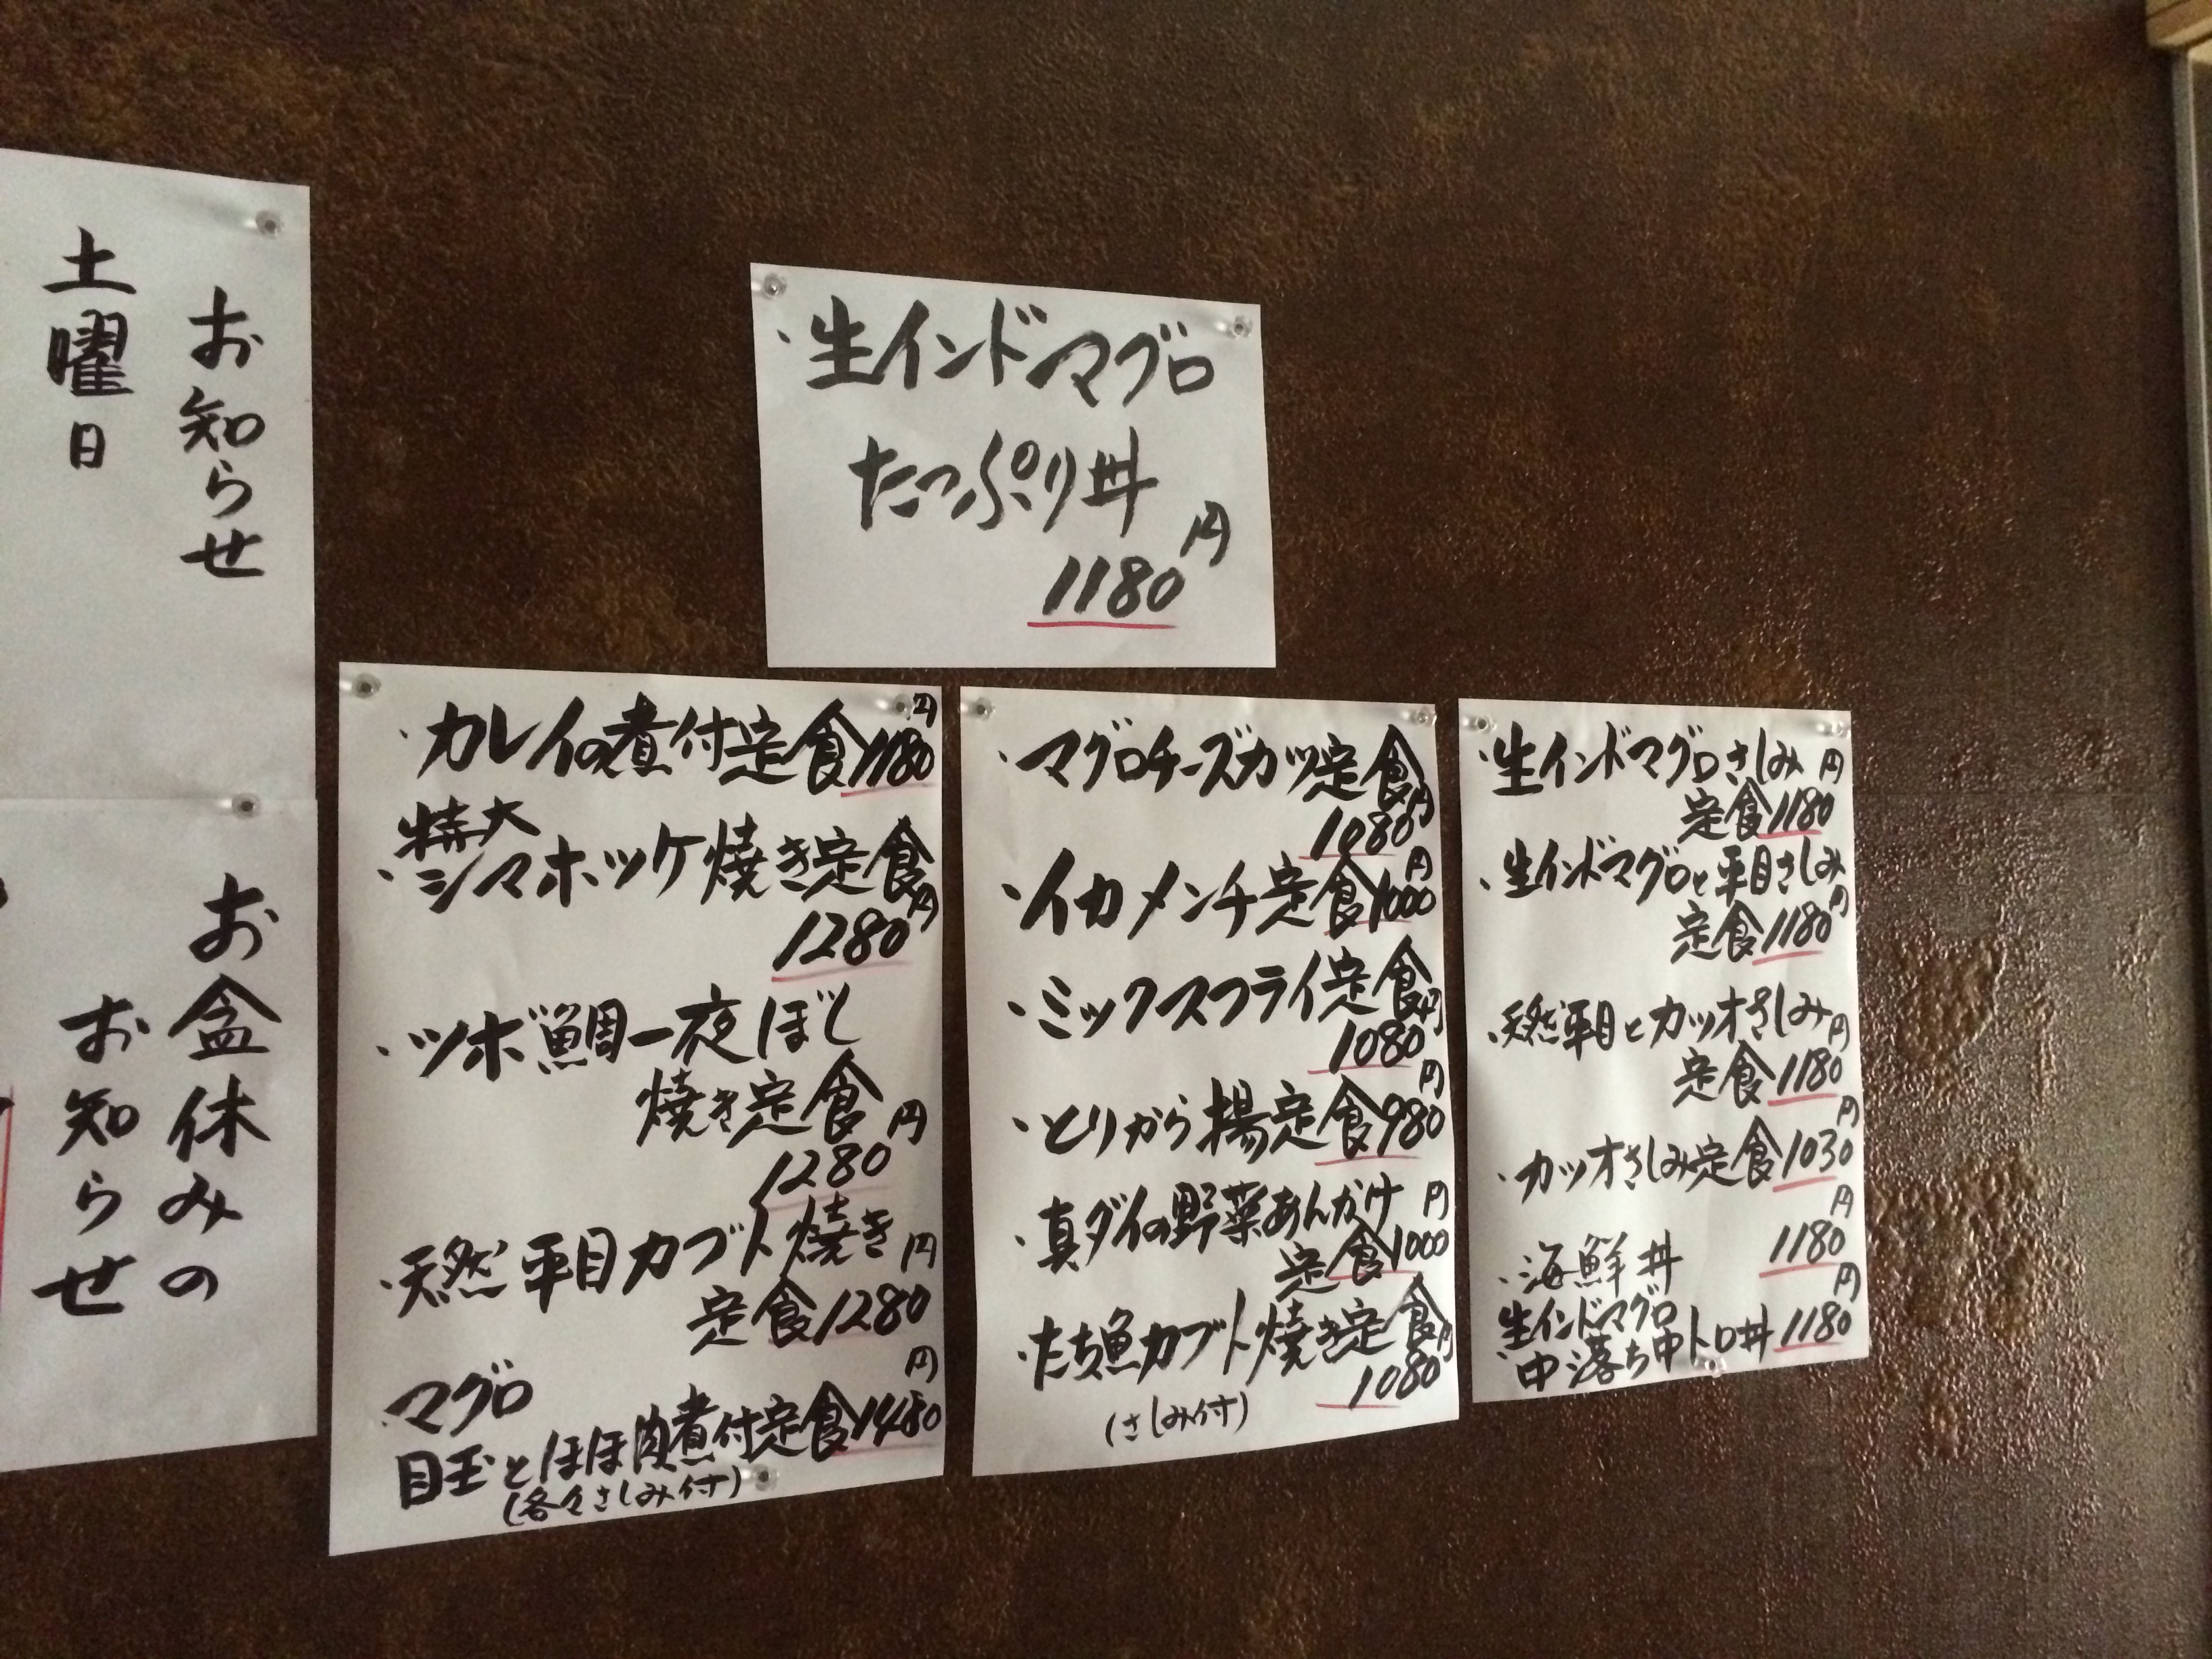 お知らせ
土曜日
お盆休みの
お知らせ
・生インドマグロ
たっぷり丼
1180円
・カレイの煮付定食1180円
特大
・シマホッケ焼き定食
1280円
・ツボ鯛一夜ぼし
焼き定食
1280円
・天然平目カブト焼き
定食1280円
マグロ
目玉とほほ肉煮付定食1480円
(各々さしみ付)
・マグロチーズカツ定食
1080円
・イカメンチ定食1000円
・ミックスフライ定食
1080円
・とりから揚定食980円
・真ダイの野菜あんかけ
定食1000円
・たち魚カブト焼き定食
1080円
(さしみ付)
・生インドマグロさしみ
定食1180円
・生インドマグロと平目さしみ
定食1180円
・天然平目とカツオさしみ
定食1180円
・カツオさしみ定食1030円
・海鮮丼 1180円
生インドマグロ
・中落ち中トロ丼1180円